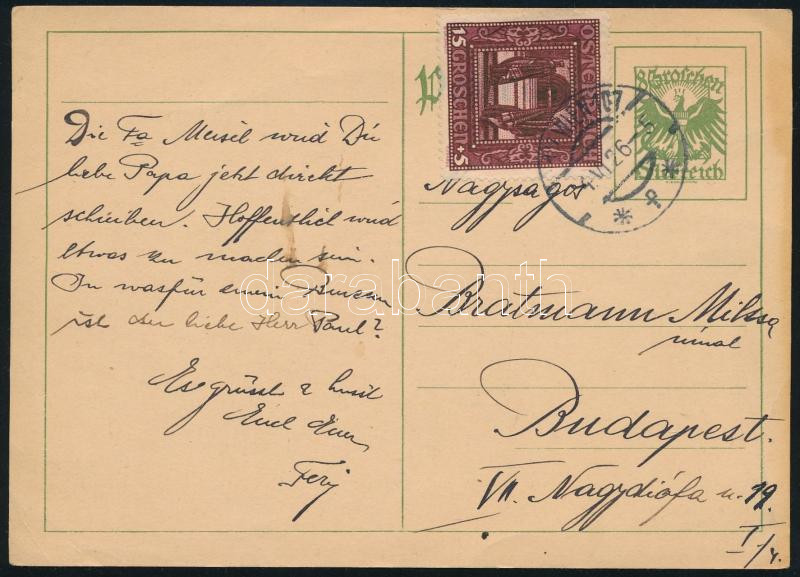 Die Fa Meisel wird Dir
liebe Papa jetzt direkt
schreiben. Hoffentlich wird
etwas zu machen sein.
In wasfür einem
ist der liebe Herr Paul?
Es grüsst & küsst
Euch Euer
Fery
15 GROSCHEN +5
ÖSTERREICH
8 Groschen
Österreich
WIEN
VI 26
Nagysàgos
Bratmann Miksa
úrnak
Budapest.
VII. Nagydiófa u. 19.
I/4.
darabanth